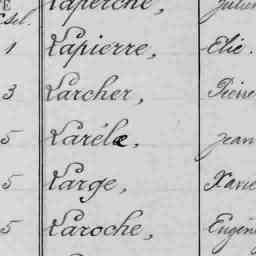 Laperche, Julien
1 Lapierre, Elie.
3 Larcher, Pierre
5 Larélæ, Jean
5 Large, Xavie
5 Laroche, Eugène